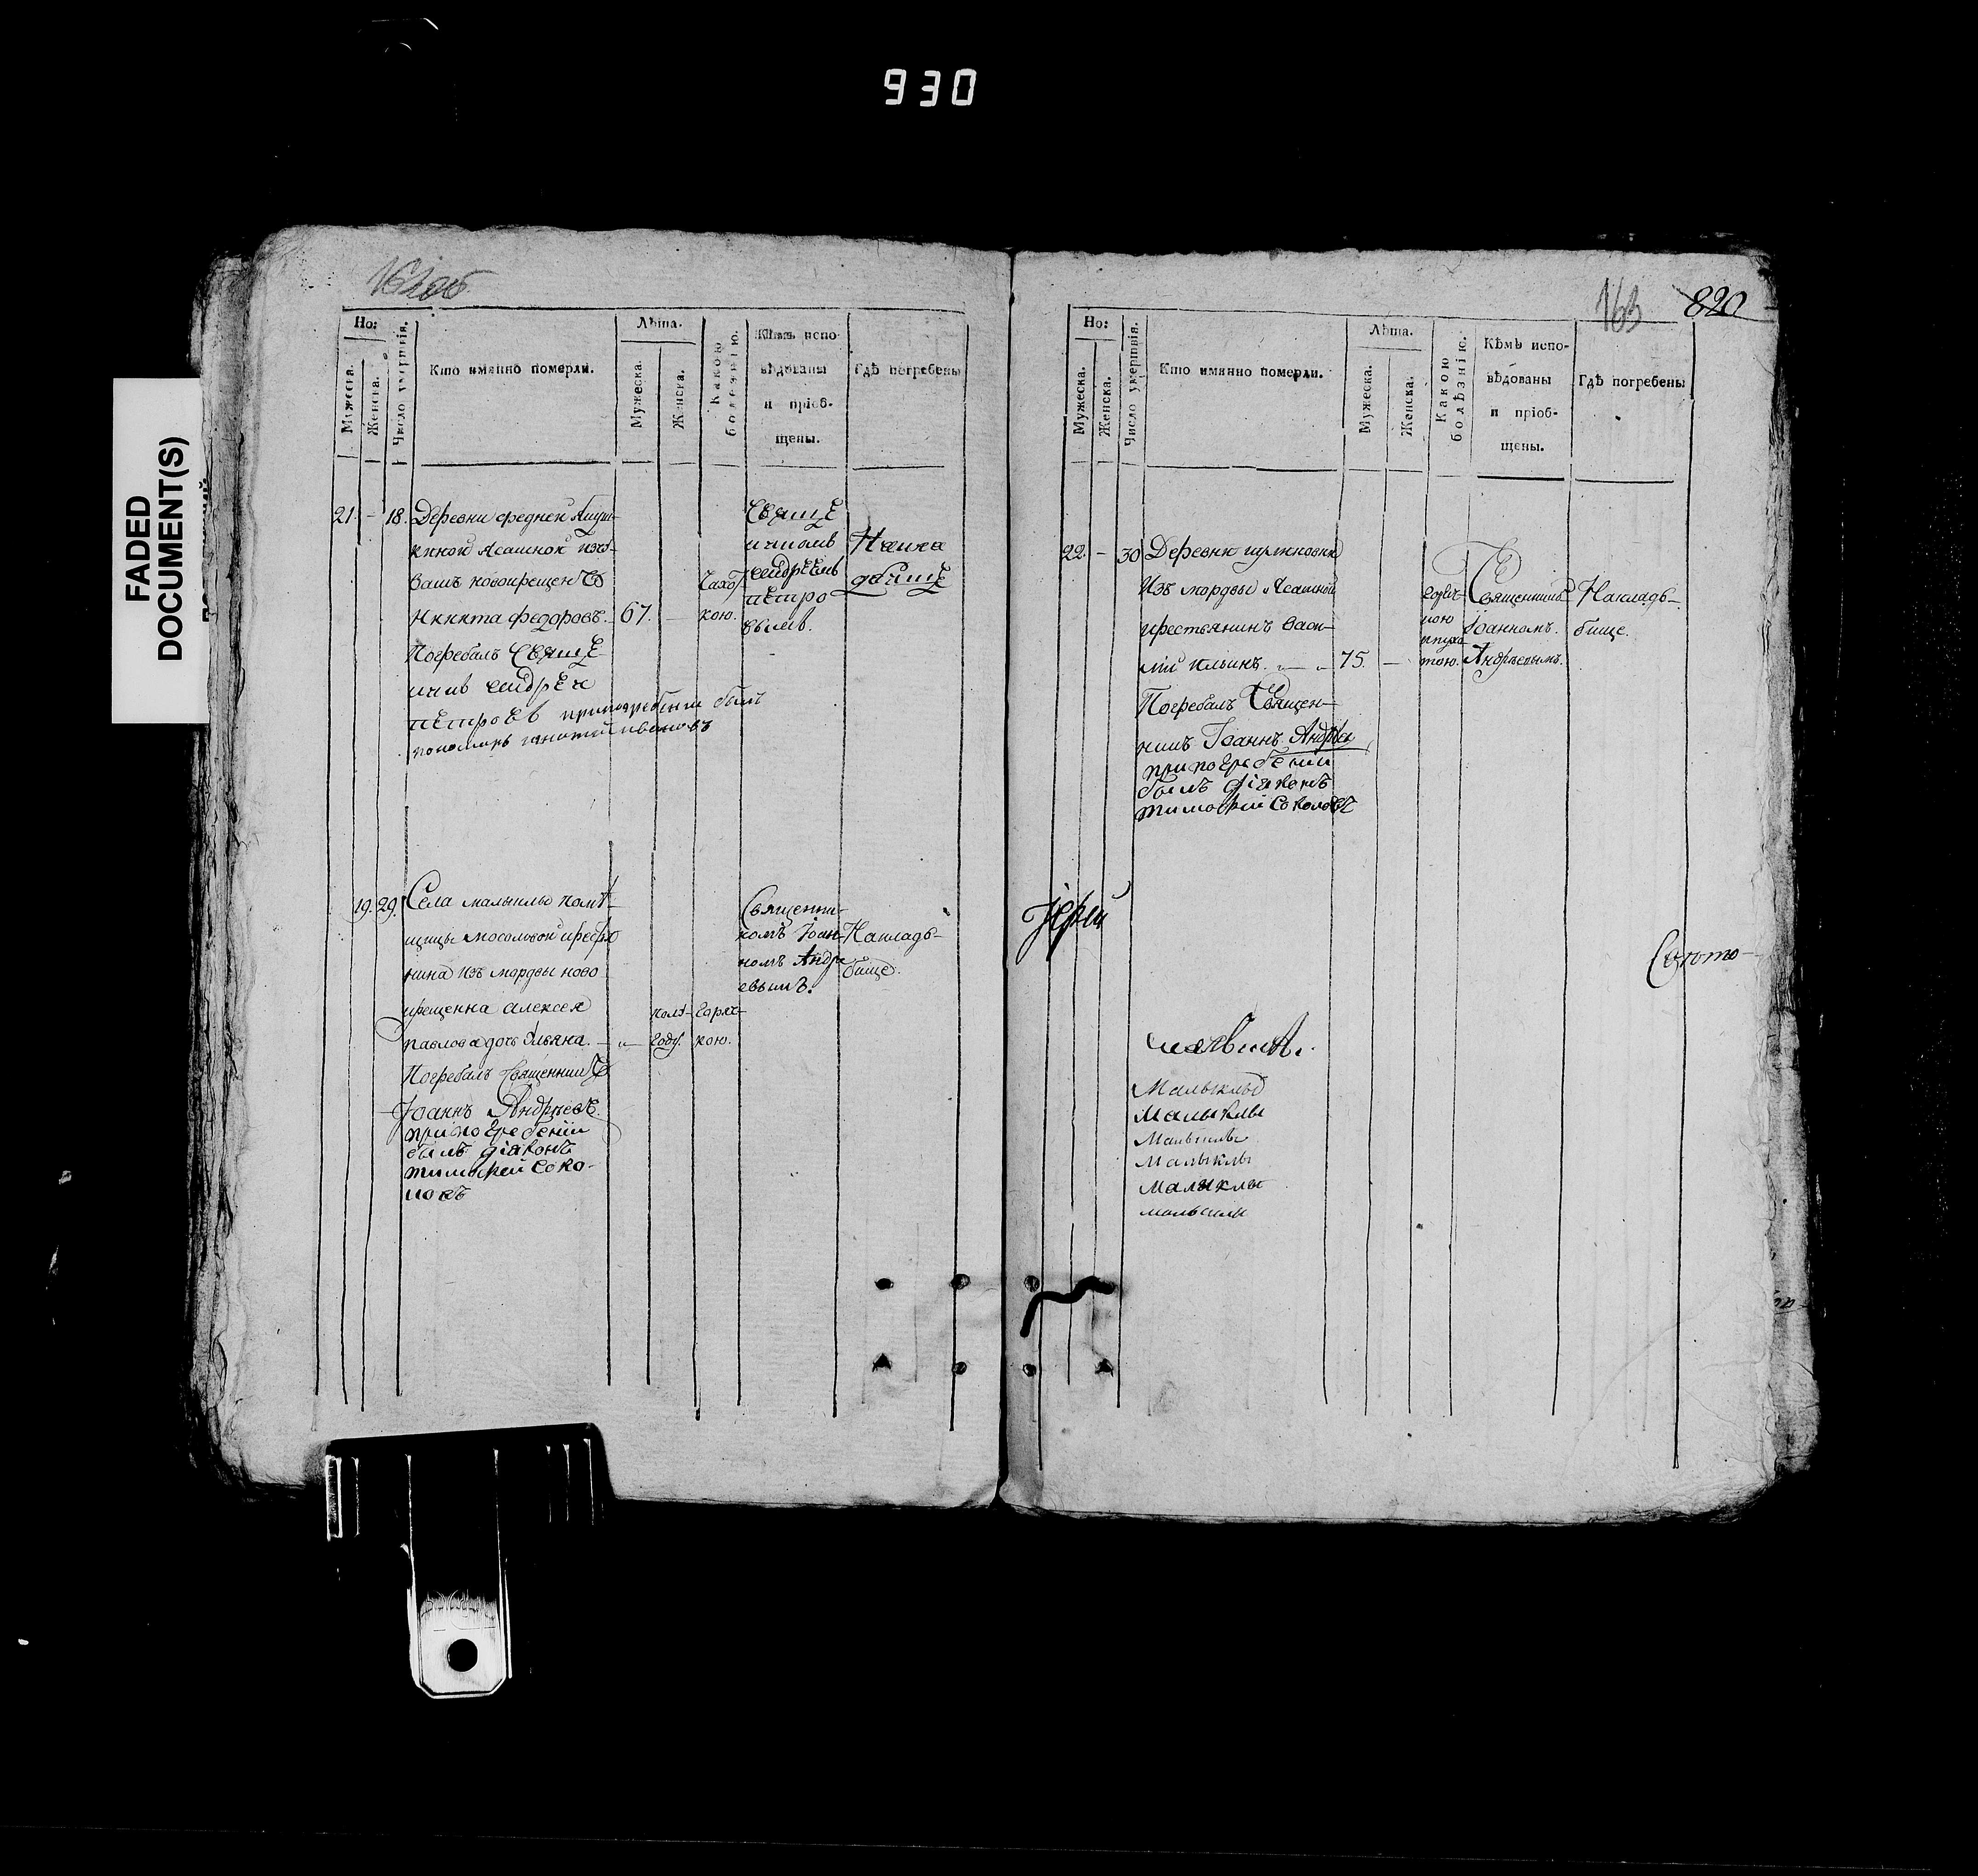 930
FADED
DOCUMENT(S)
163
820
Но:
Мужеска.
Женска.
Число умертвія.
Кто имянно померли.
Лѣта.
Мужеска.
Женска.
Какою
болѣзнію.
Кѣмъ испо-
вѣдованы
и пріоб-
щены.
Гдѣ погребены
21. - 18. Деревни средней
ясашной изъ чу-
вашъ новокрещенъ
Никита федоровъ. 67. -
Погребалъ Свяще
никъ андреи
петровъ при погребении былъ
пономарь ивановъ
Чахот
кою.
Свяще
никомъ
андреемъ
петро
вымъ.
На кла
дбище
19. 29. Села малыклы помѣ-
щицы мосоловой крестья
нина изъ мордвы ново
крещенна алексея
павлова дочь Ульяна.
полъ-
году.
горяч-
кою.
Погребалъ Священникъ
Іоаннъ Андреевъ.
при погребеніи
былъ діаконъ
тимофей соко-
ловъ
Священни-
комъ Іоан-
номъ Андре
евымъ.
На кладъ-
бище.
Но:
Мужеска.
Женска.
Число умертвія.
Кто имянно померли.
Лѣта.
Мужеска.
Женска.
Какою
болѣзнію.
Кѣмъ испо-
вѣдованы
и пріоб-
щены.
Гдѣ погребены
22. - 30 Деревни
Изъ мордвы Ясашной
крестьянинъ Васи-
лій ильинъ. 75. -
Погребалъ Священ-
никъ Іоаннъ Андрѣев
при погребеніи
былъ діаконъ
тимофей соколовъ
Священникъ
Іоанномъ.
Андрѣевымъ.
На кладъ-
бище.
Іерей
Малыклы
малыклы
Малыклы
Малыклы
Малыклы
малыклы